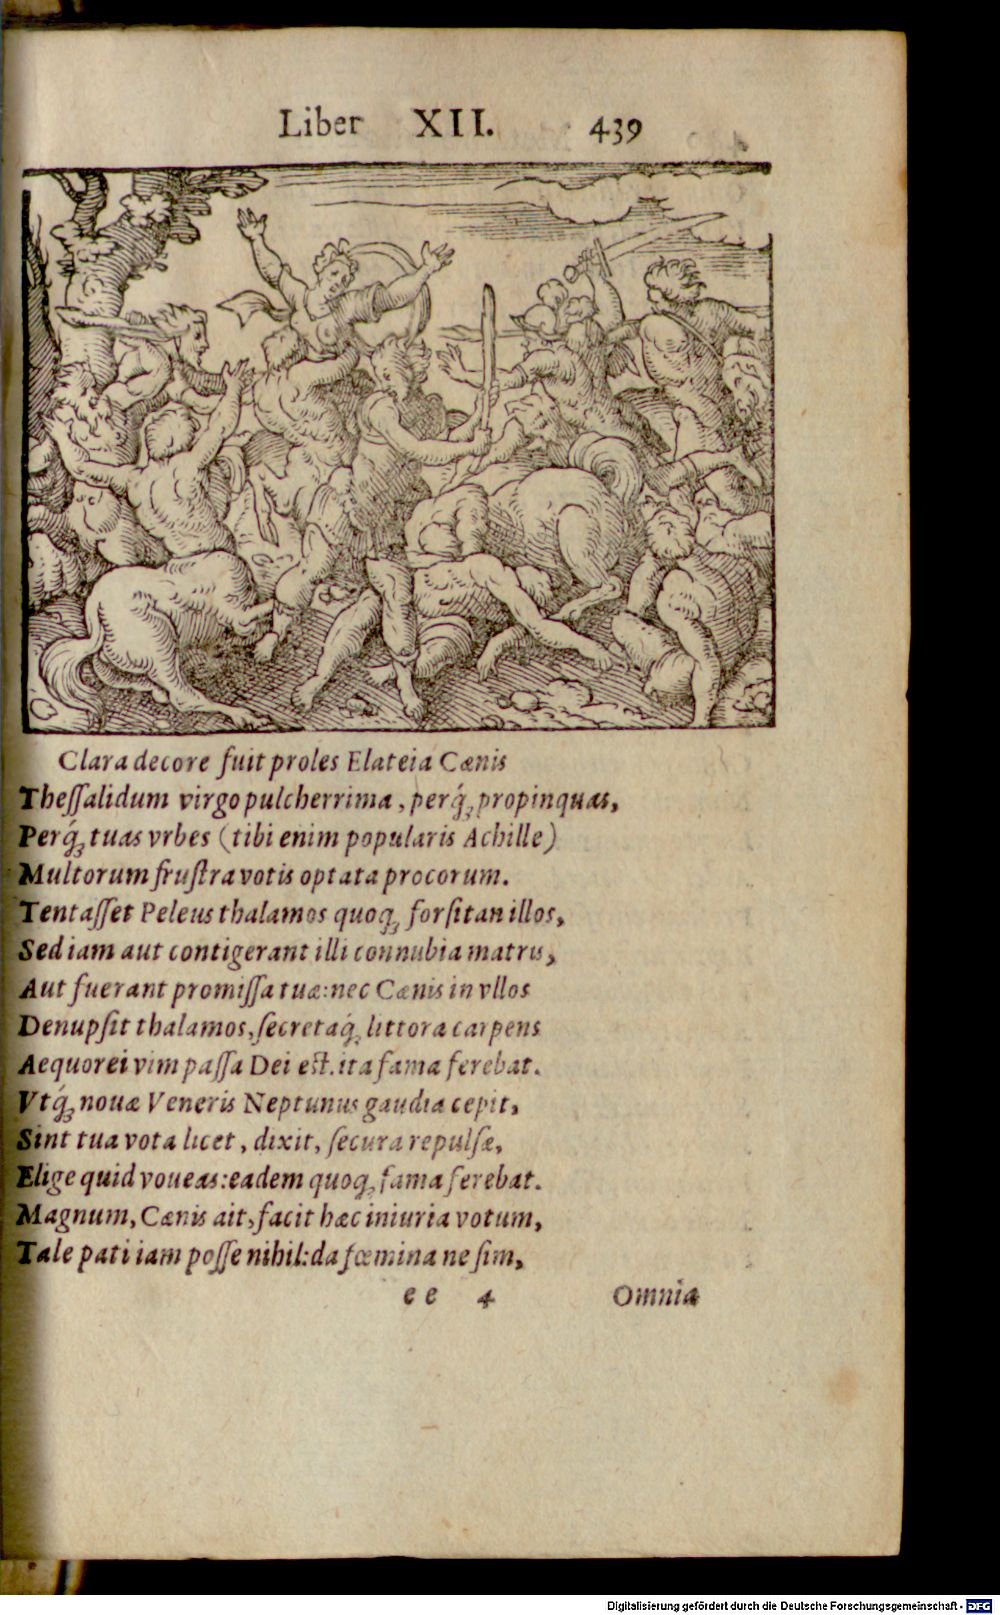 Liber XII. 439
Clara decore fuit proles Elateia Cænis
Theſſalidum virgo pulcherrima, perq́; propinquas,
Perq́; tuas vrbes (tibi enim popularis Achille)
Multorum fruſtra votis optata procorum.
Tentaſſet Peleus thalamos quoq; forſitan illos,
Sed iam aut contigerant illi connubia matris,
Aut fuerant promiſſa tuæ: nec Cænis in vllos
Denupſit thalamos, ſecretaq́; littora carpens
Aequorei vim paſſa Dei eſt. ita fama ferebat.
Vtq́; nouæ Veneris Neptunus gaudia cepit,
Sint tua vota licet, dixit, ſecura repulſæ,
Elige quid voueas: eadem quoq; fama ferebat.
Magnum, Cænis ait, facit hæc iniuria votum,
Tale pati iam poſſe nihil: da fœmina ne ſim,
ee 4 Omnia
Digitalisierung gefördert durch die Deutsche Forschungsgemeinschaft - DFG